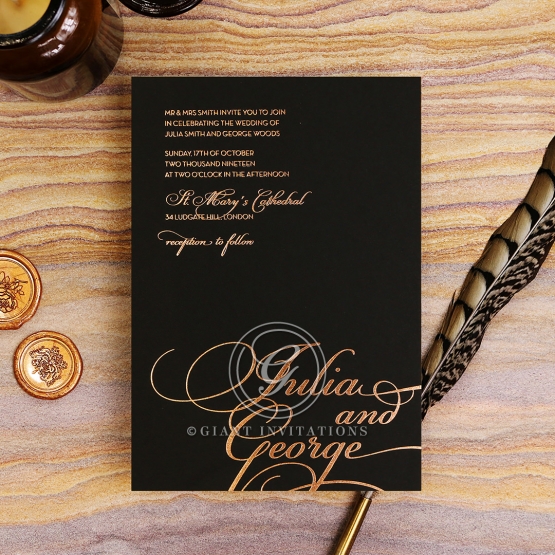 MR & MRS SMITH INVITE YOU TO JOIN
IN CELEBRATING THE WEDDING OF
JULIA SMITH AND GEORGE WOODS
SUNDAY, 17TH OF OCTOBER
TWO THOUSAND NINETEEN
AT TWO O'CLOCK IN THE AFTERNOON
St. Mary's Cathedral
34 LUDGATE HILL, LONDON
reception to follow
Julia
and
©GIANT INVITATIONS
George